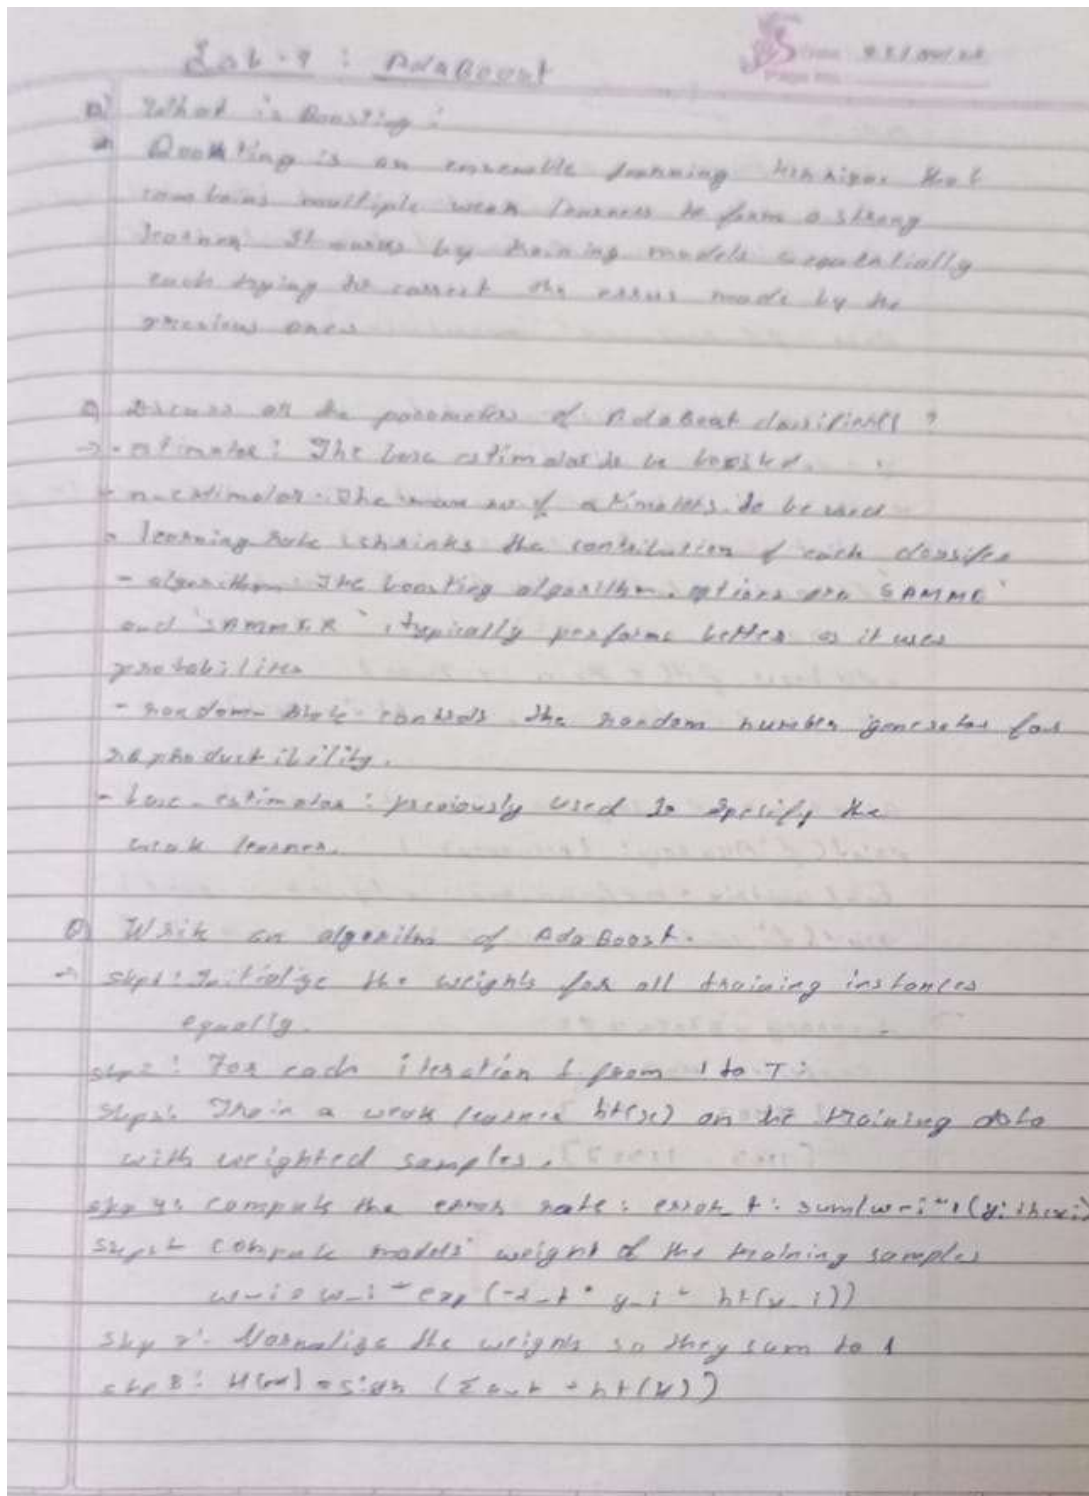 Lab-9 : AdaBoost
Page No.
Q) What is Boosting :
Boosting is an ensemble learning that
combains multiple weak learners to form a strong
learner. It works by training models sequentially
each trying to correct the errors made by the
previous ones
Q) Discuss all the parameters of AdaBoost classifiers ?
→ - estimator : The base estimator to be boosted.
- n-estimator - The max no. of estimators to be used
- learning rate : shrinks the contribution of each classifer
- algorithm : The boosting algorithm. options are 'SAMME'
and 'SAMME.R' , typically performs better as it uses
probabilities
- random-state - controls the random number generator for
reproductibility.
- base-estimator : previously used to specify the
weak learner.
Q) Write an algorithm of AdaBoost.
→ step1 : Initialize the weights for all training instances
equally.
step2 : For each iteration t from 1 to T :
step3 : Train a weak learner ht(x) on the training data
with weighted samples.
step 4: compute the error rate : error_t : sum(w-i
step5 compute models' weight of the training samples
w-i = w-i * exp (-α_t * y-i * ht(x_i))
step 7 : Normalize the weights so they sum to 1
step 8 : H(x) = sign (Σ * ht(x))